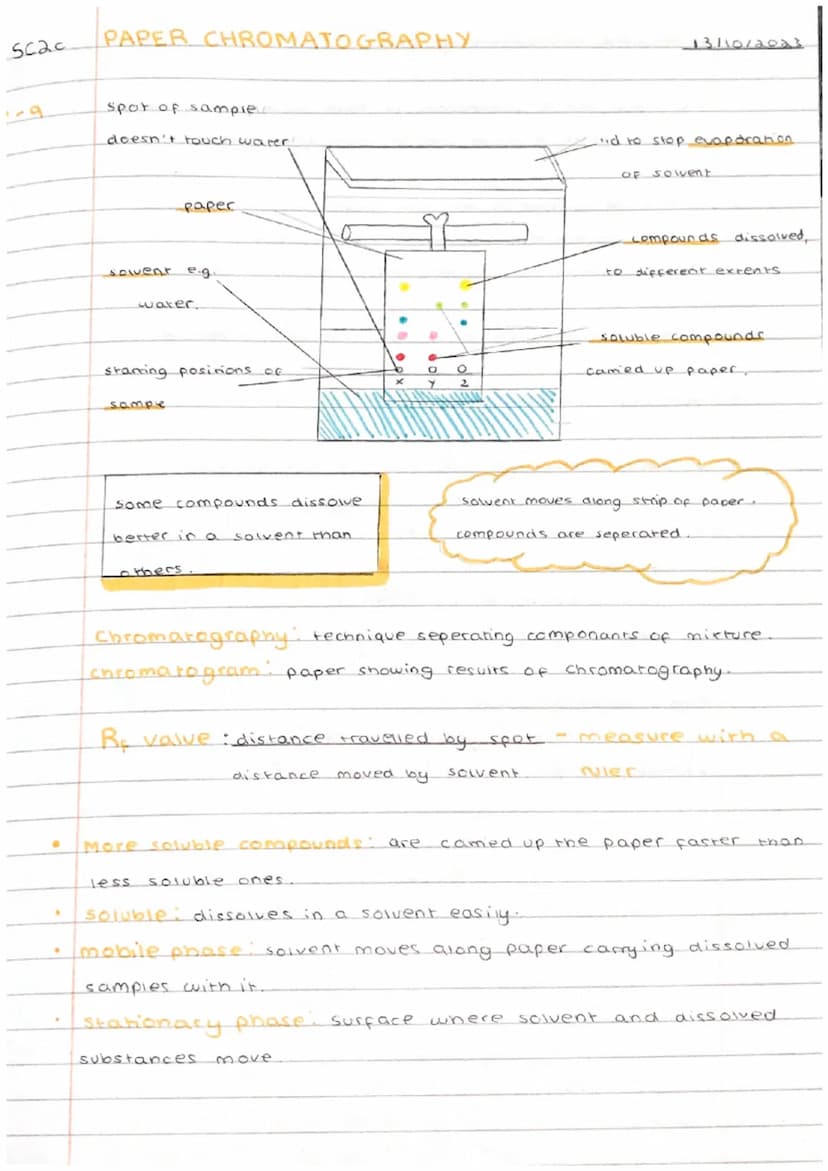 SC2c
PAPER CHROMATOGRAPHY
13/10/2023
spot of sample
doesn't touch water
lid to stop evaporation
of solvent
paper
compounds dissolved,
to different extents
solvent e.g.
water.
soluble compounds
carried up paper.
starting positions of
sample
X Y Z
some compounds dissolve
better in a solvent than
others.
solvent moves along strip of paper.
compounds are seperated.
Chromatography: technique seperating componants of mixture.
chromatogram: paper showing results of chromatography.
Rf value: distance travelled by spot - measure with a
distance moved by solvent. ruler
• More soluble compounds: are carried up the paper faster than
less soluble ones.
• soluble: dissolves in a solvent easily.
• mobile phase: solvent moves along paper carrying dissolved
samples with it.
• Stationary phase: surface where solvent and dissolved
substances move.